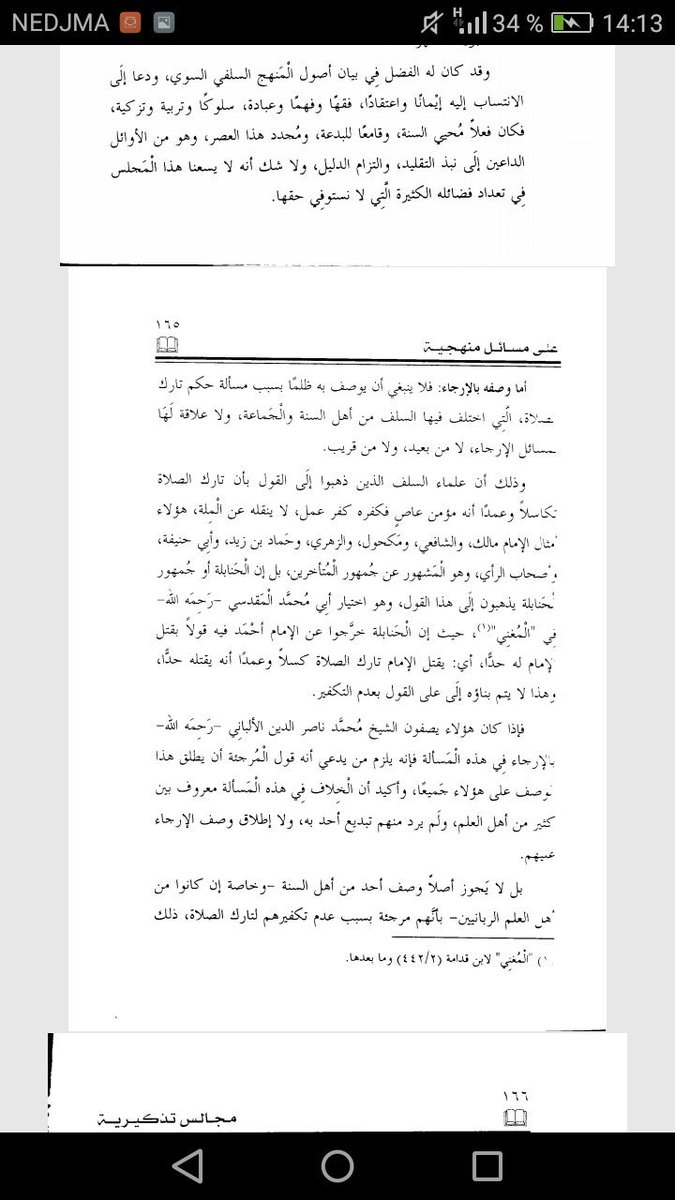 NEDJMA
H
34 %
14:13
وقد كان له الفضل فِي بيان أصول الْمَنهج السلفي السوي، ودعا إلَى
الانتساب إليه إيْمانًا واعتقادًا، فقهًا وفهمًا وعبادة، سلوكًا وتربية وتزكية،
فكان فعلاً مُحيي السنة، وقامعًا للبدعة، ومُجدد هذا العصر، وهو من الأوائل
الداعين إلَى نبذ التقليد، والتزام الدليل، ولا شك أنه لا يسعنا هذا الْمَجلس
فِي تعداد فضائله الكثيرة الَّتِي لا نستوفِي حقها.
١٦٥
على مسائل منهجية
أما وصفه بالإرجاء: فلا ينبغي أن يوصف به ظلمًا بسبب مسألة حكم تارك
الصلاة، الَّتِي اختلف فيها السلف من أهل السنة والْجَماعة، ولا علاقة لَهَا
بمسائل الإرجاء، لا من بعيد، ولا من قريب.
وذلك أن علماء السلف الذين ذهبوا إلَى القول بأن تارك الصلاة
تكاسلاً وعمدًا أنه مؤمن عاصٍ فكفره كفر عمل، لا ينقله عن الْمِلة، هؤلاء
أمثال الإمام مالك، والشافعي، ومَكحول، والزهري، وحَماد بن زيد، وأبِي حنيفة،
وأصحاب الرأي، وهو الْمَشهور عن جُمهور الْمُتأخرين، بل إن الْحَنابلة أو جُمهور
الْحَنابلة يذهبون إلَى هذا القول، وهو اختيار أبِي مُحمَّد الْمَقدسي -رَحِمَه الله-
فِي "الْمُغنِي"(١)، حيث إن الْحَنابلة خرَّجوا عن الإمام أحْمَد فيه قولاً بقتل
الإمام له حدًّا، أي: يقتل الإمام تارك الصلاة كسلاً وعمدًا أنه يقتله حدًّا،
وهذا لا يتم بناؤه إلَى على القول بعدم التكفير.
فإذا كان هؤلاء يصفون الشيخ مُحمَّد ناصر الدين الألبانِي -رَحِمَه الله-
بالإرجاء فِي هذه الْمَسألة فإنه يلزم من يدعي أنه قول الْمُرجئة أن يطلق هذا
الوصف على هؤلاء جَميعًا، وأكيد أن الْخِلاف فِي هذه الْمَسألة معروف بين
كثير من أهل العلم، ولَم يرد منهم تبديع أحد به، ولا إطلاق وصف الإرجاء
عليهم.
بل لا يَجوز أصلاً وصف أحد من أهل السنة -وخاصة إن كانوا من
أهل العلم الربانيين- بأنَّهم مرجئة بسبب عدم تكفيرهم لتارك الصلاة، ذلك
(١) "الْمُغنِي" لابن قدامة (٤٤٢/٢) وما بعدها.
١٦٦
مجالس تذكيرية